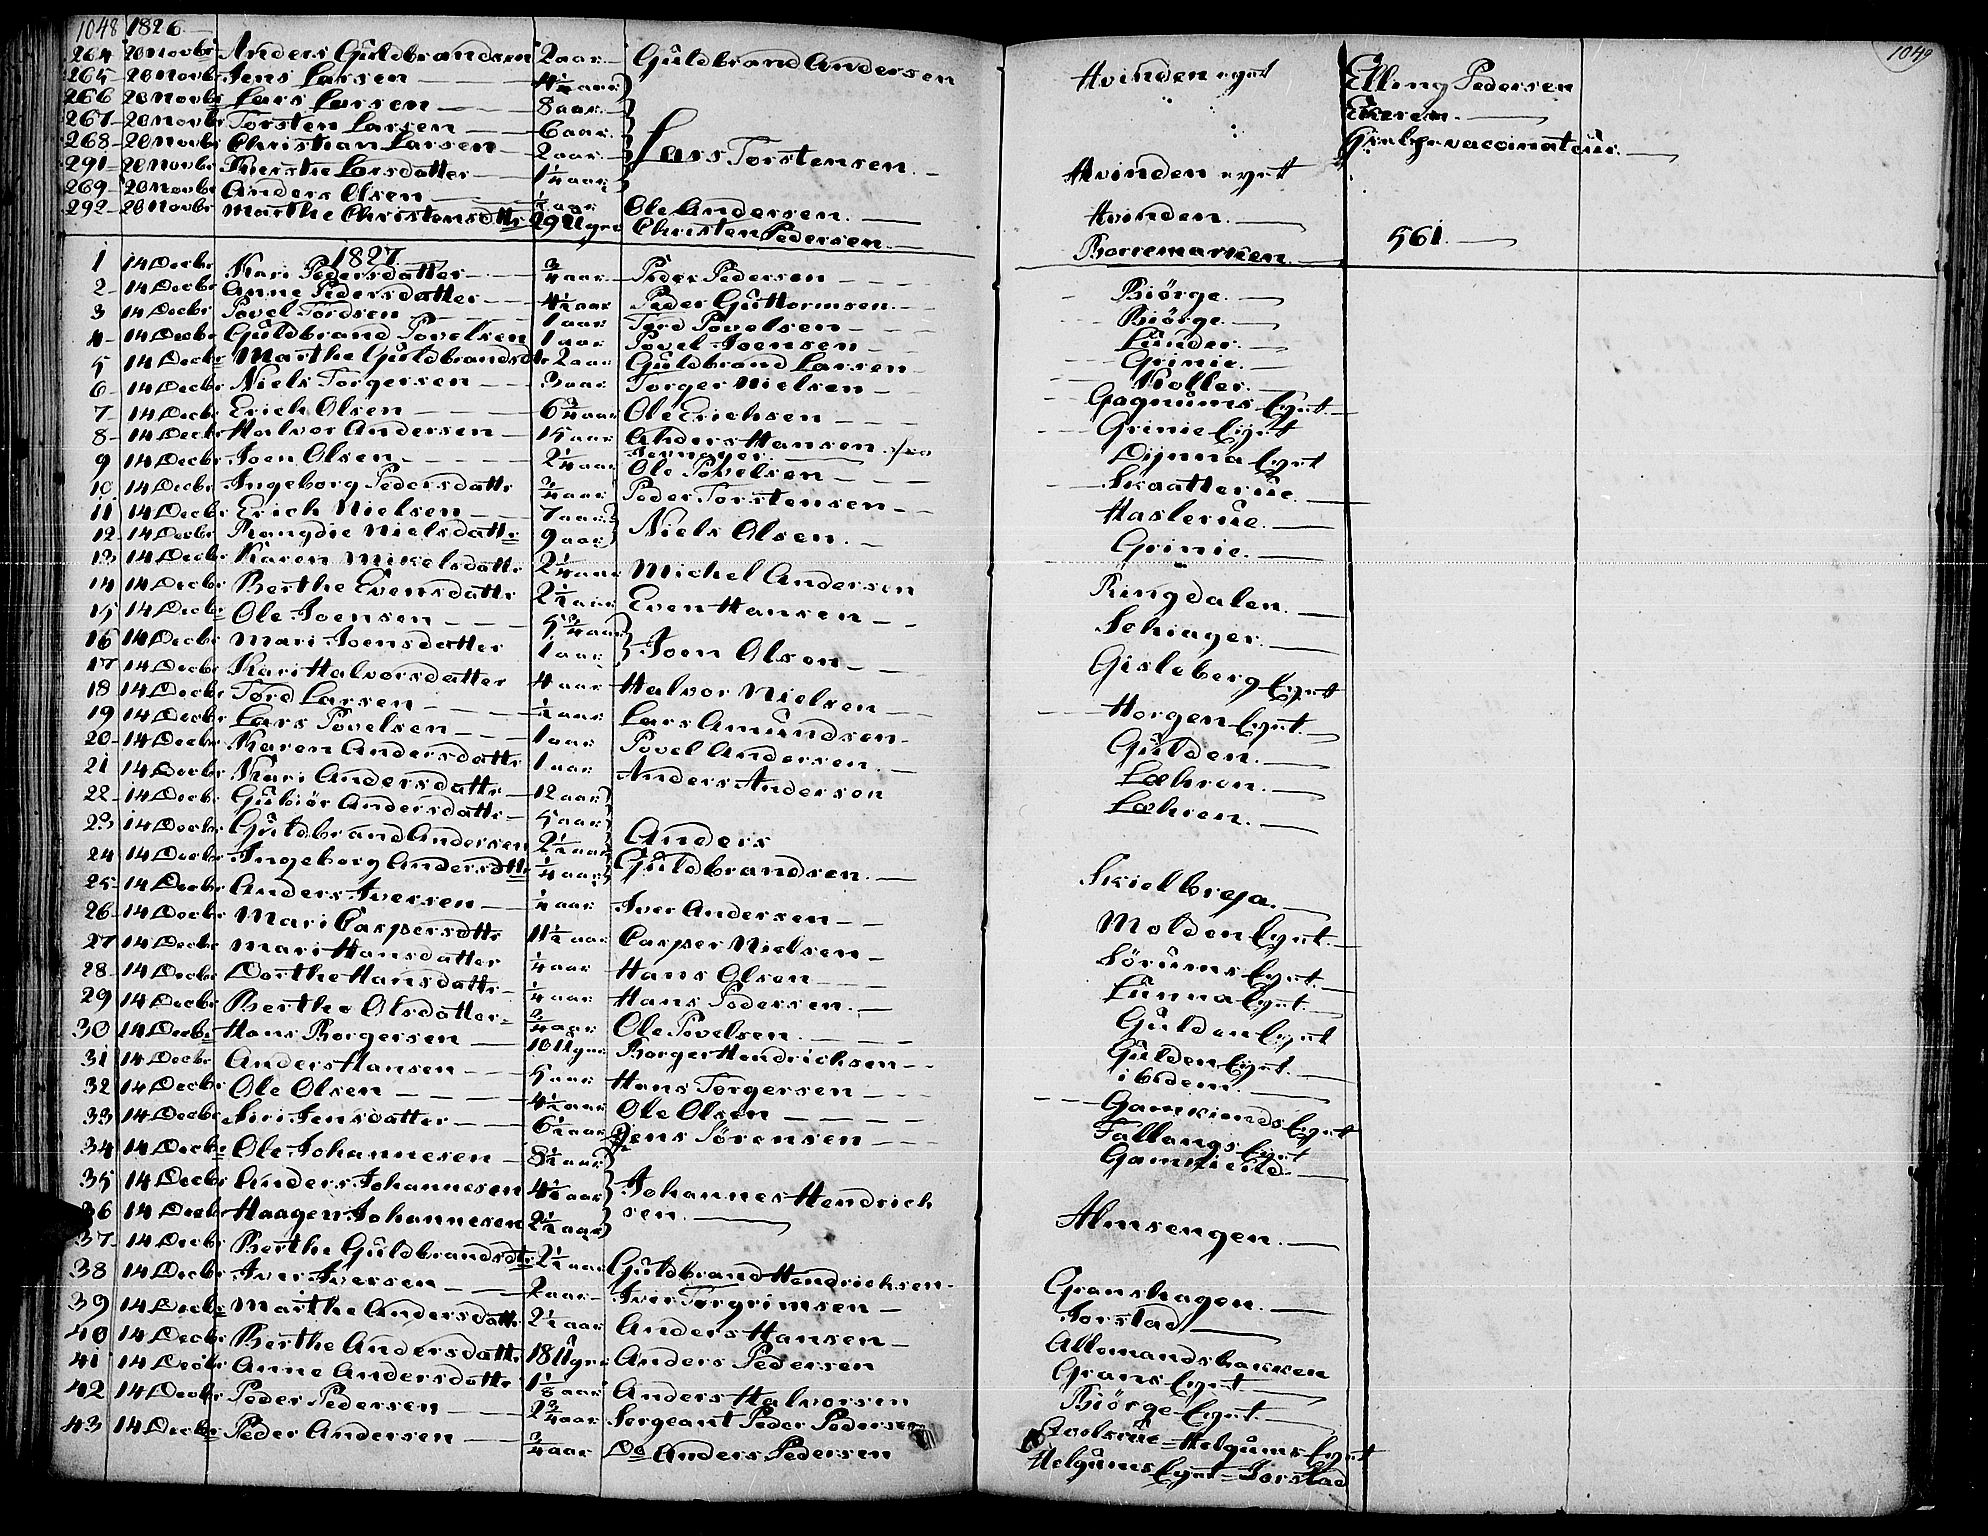 1048 1826
264 20 Novbr Anders Guldbrandsen 2 aar Guldbrand Andersen Hvinden eyet Elling Pedersen
265 20 Novbr Jens Larsen 4½ aar Ekeren.
266 20 Novbr Lars Larsen 8 aar
267 20 Novbr Torsten Larsen 6 aar vaccinateur.
268 20 Novbr Christian Larsen 2 aar Lars Torstensen. Hvinden eyet
291 20 Novbr Kierstie Larsdatter 1¼ aar
269 20 Novbr Anders Olsen ½ aar Ole Andersen. Hvinden.
292 20 Novbr Marthe Christensdttr 29 Ugr Christen Pedersen. Borremarken. 561.
1827
1 14 Decbr Kari Pedersdatter ¾ aar Peder Pedersen Biörge.
2 14 Decbr Anne Pedersdatter 4½ aar Peder Guttormsen Biörge.
3 14 Decbr Povel Tordsen 1 aar Tord Povelsen Lunder.
4 14 Decbr Guldbrand Povelsen 1 aar Povel Joensen Grinie.
5 14 Decbr Marthe Guldbrandsdtr 2 aar Guldbrand Larsen Koller.
6 14 Decbr Niels Torgersen 3 aar Torger Nielsen Gagnums Eyet
7 14 Decbr Erich Olsen 6¾ aar Ole Erichsen Grinie Eyet
8 14 Decbr Halvor Andersen 15 aar Anders Hansen fra Dynna Eyet
9 14 Decbr Joen Olsen 2¼ aar Ole Povelsen Skaatterue
10 14 Decbr Ingeborg Pedersdattr ¾ aar Peder Torstensen Haslerue.
11 14 Decbr Erich Nielsen 7 aar Niels Olsen. Grinie.
12 14 Decbr Rangdie Nielsdattr 9 aar
13 14 Decbr Karen Mikelsdattr 2¼ aar Michel Andersen Ringdalen.
14 14 Decbr Berthe Evensdattr 2½ aar Even Hansen Schiager.
15 14 Decbr Ole Joensen 5¾ aar Joen Olsen Gisleberg Eyet
16 14 Decbr Mari Joensdatter 1 aar
17 14 Decbr Kari Halvorsdatter 4 aar Halvor Nielsen Horgen Eyet.
18 14 Decbr Tord Larsen ½ aar Lars Amundsen Gulden.
19 14 Decbr Lars Povelsen 1 aar Povel Andersen. Læhren.
20 14 Decbr Karen Andersdattr 1 aar Anders Andersen Læhren.
21 14 Decbr Kari Andersdattr 12 aar
22 14 Decbr Gubiör Andersdattr 5 aar Anders
23 14 Decbr Guldbrand Andersen 2½ aar Guldbrandsen. Skielbreja.
24 14 Decbr Ingeborg Andersdttr ¼ aar
25 14 Decbr Anders Iversen ¼ aar Iver Andersen Molden Eyet.
26 14 Decbr Mari Caspersdttr 11½ aar Casper Nielsen Sörums Eyet.
27 14 Decbr Mari Hansdatter ¼ aar Hans Olsen Lunna Eyet.
28 14 Decbr Dorthe Hansdattr ¼ aar Hans Pedersen Gulden Eyet
29 14 Decbr Berthe Olsdatter ¾ aar Ole Povelsen Gulden Eyet
30 14 Decbr Hans Borgersen 10 Ugr Borger Hendrichsen ibidem.
31 14 Decbr Anders Hansen 5 aar Hans Torgersen Gamkiends Eyet
32 14 Decbr Ole Olsen 4½ aar Ole Olsen Fallangs Eyet
33 14 Decbr Siri Jensdatter 6½ aar Jens Sörensen
34 14 Decbr Ole Johannesen 8½ aar
35 14 Decbr Anders Johannesen 4½ aar Johannes Hendrich
36 14 Decbr Haagen Johannesen 2½ aar sen. Almsengen.
37 14 Decbr Berthe Guldbrandsdtr 2½ aar Guldbrand Hendrichsen Granshagen.
38 14 Decbr Iver Iversen 2 aar Iver Torgrimsen Jorstad
39 14 Decbr Marthe Andersdattr 2½ aar Anders Hansen Allemandsbakken
40 14 Decbr Berthe Andersdattr 18 Ugr Anders Pedersen Grans Eyet
41 14 Decbr Anne Andersdattr 1⅛ aar Anders Halvorsen Biörge Eyet.
42 14 Decbr Peder Pedersen 2¾ aar Sergeant Peder Pedersen Helgums Eyet
43 14 Decbr Peder Andersen ¾ aar Do Anders Pedersen Helgums Eyet = Jorstad
1049